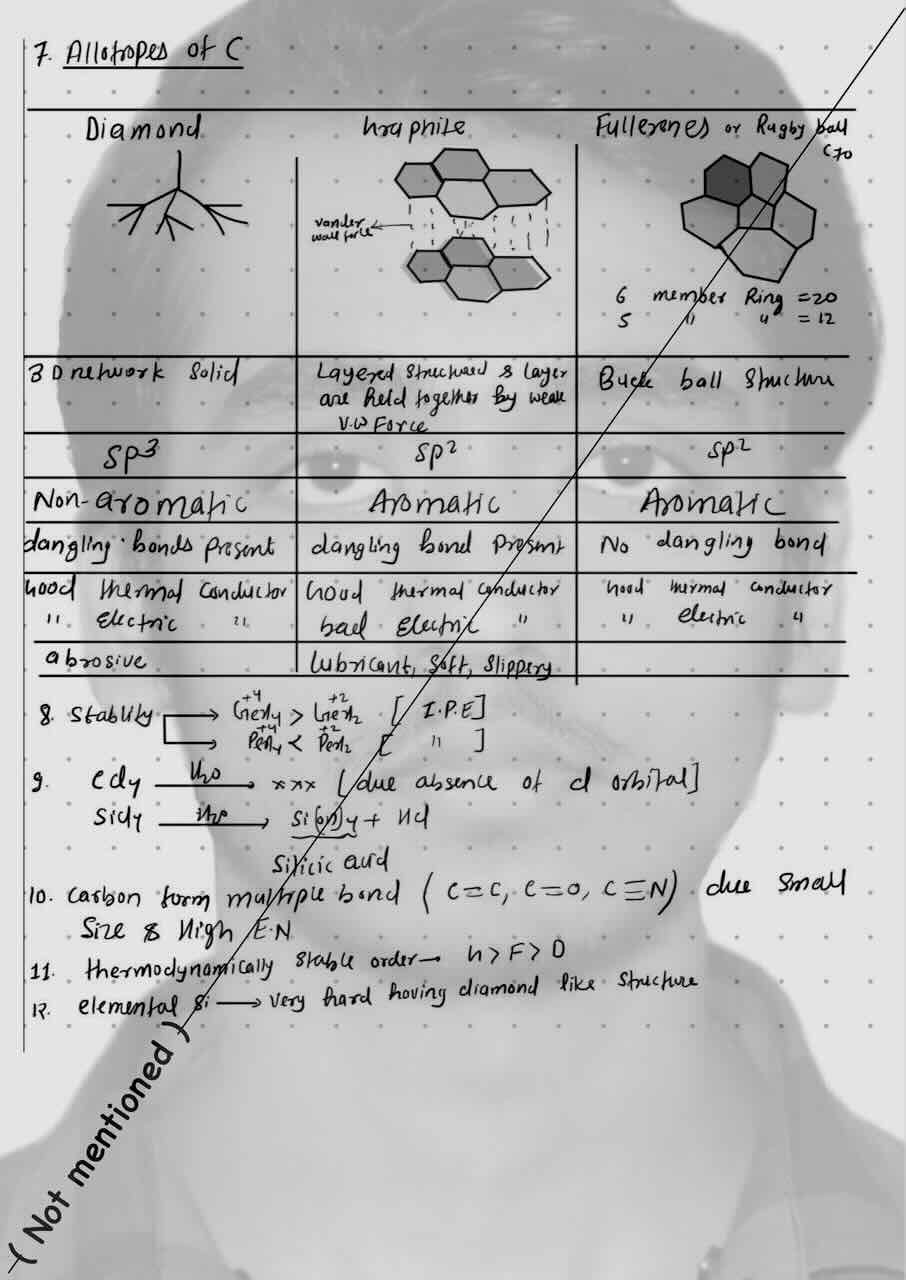 7. Allotropes of C
Diamond
Graphite
Fullerenes or Rugby ball
C70
vander
wall force
6 member Ring = 20
5 " " = 12
3D network Solid
Layered Structured & layer
are held together by weak
V.W Force
Buck ball Structure
SP3
SP2
SP2
Non-aromatic
Aromatic
Aromatic
dangling bonds Present
dangling bond Present
No dangling bond
Good thermal conductor
" Electric "
Good thermal conductor
bad Electric "
Good thermal conductor
" electric "
abrosive
Lubricant, Soft, Slippery
8. Stablity → +4 GeX4 > +2 GeX2 [ I.P.E]
→ +4 PbX4 < +2 PbX2 [ " ]
9. CCl4 H2O → xxx [due absence of d orbital]
SiCl4 H2O → Si(OH)4 + HCl
Silicic acid
10. Carbon form multiple bond ( C=C, C=O, C≡N) due Small
Size & High E.N
11. thermodynamically stable order→ G > F > D
12. elemental Si → very hard hoving diamond like Structure
( Not mentioned )